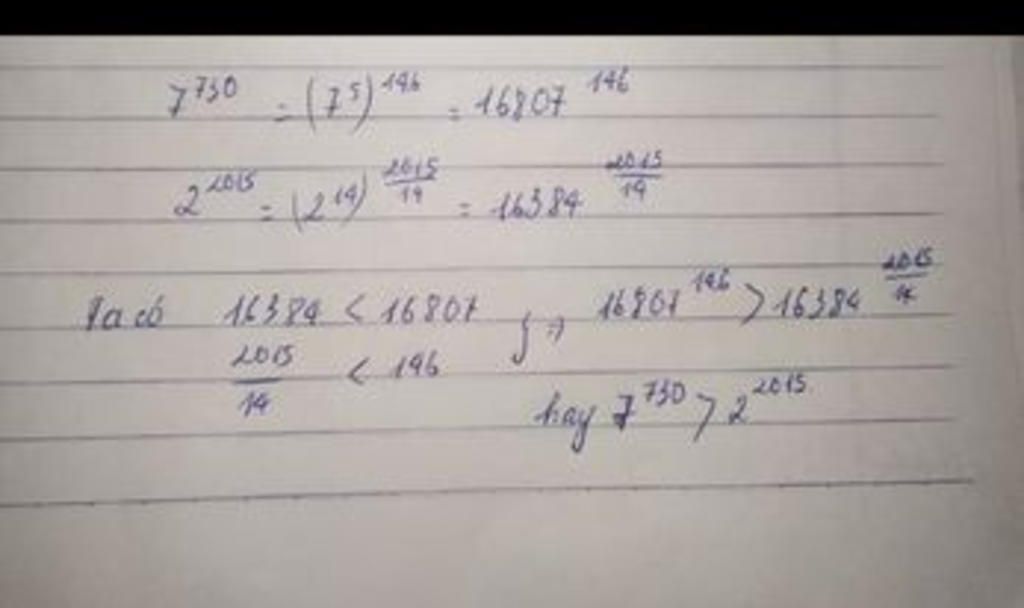 7^730 = (7^5)^146 = 16807^146
2^2015 = (2^14)^(2015/14) = 16384^(2015/14)
Ta có 16384 < 16807 } => 16807^146 > 16384^(2015/14)
2015/14 < 146
hay 7^730 > 2^2015